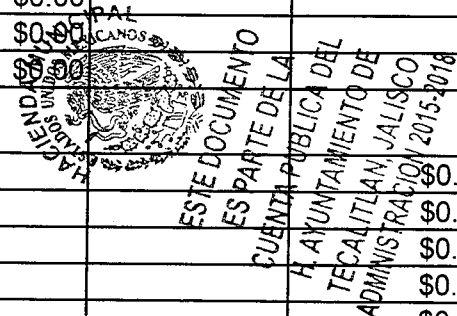 $0.00
$0.00
$0.00
HACIENDA
ESTADOS UNIDOS MEXICANOS
ESTE DOCUMENTO
ES PARTE DE LA
CUENTA PUBLICA DEL
H. AYUNTAMIENTO DE
TECALITLAN, JALISCO
ADMINISTRACION 2015-2018
$0.
$0.
$0.
$0.